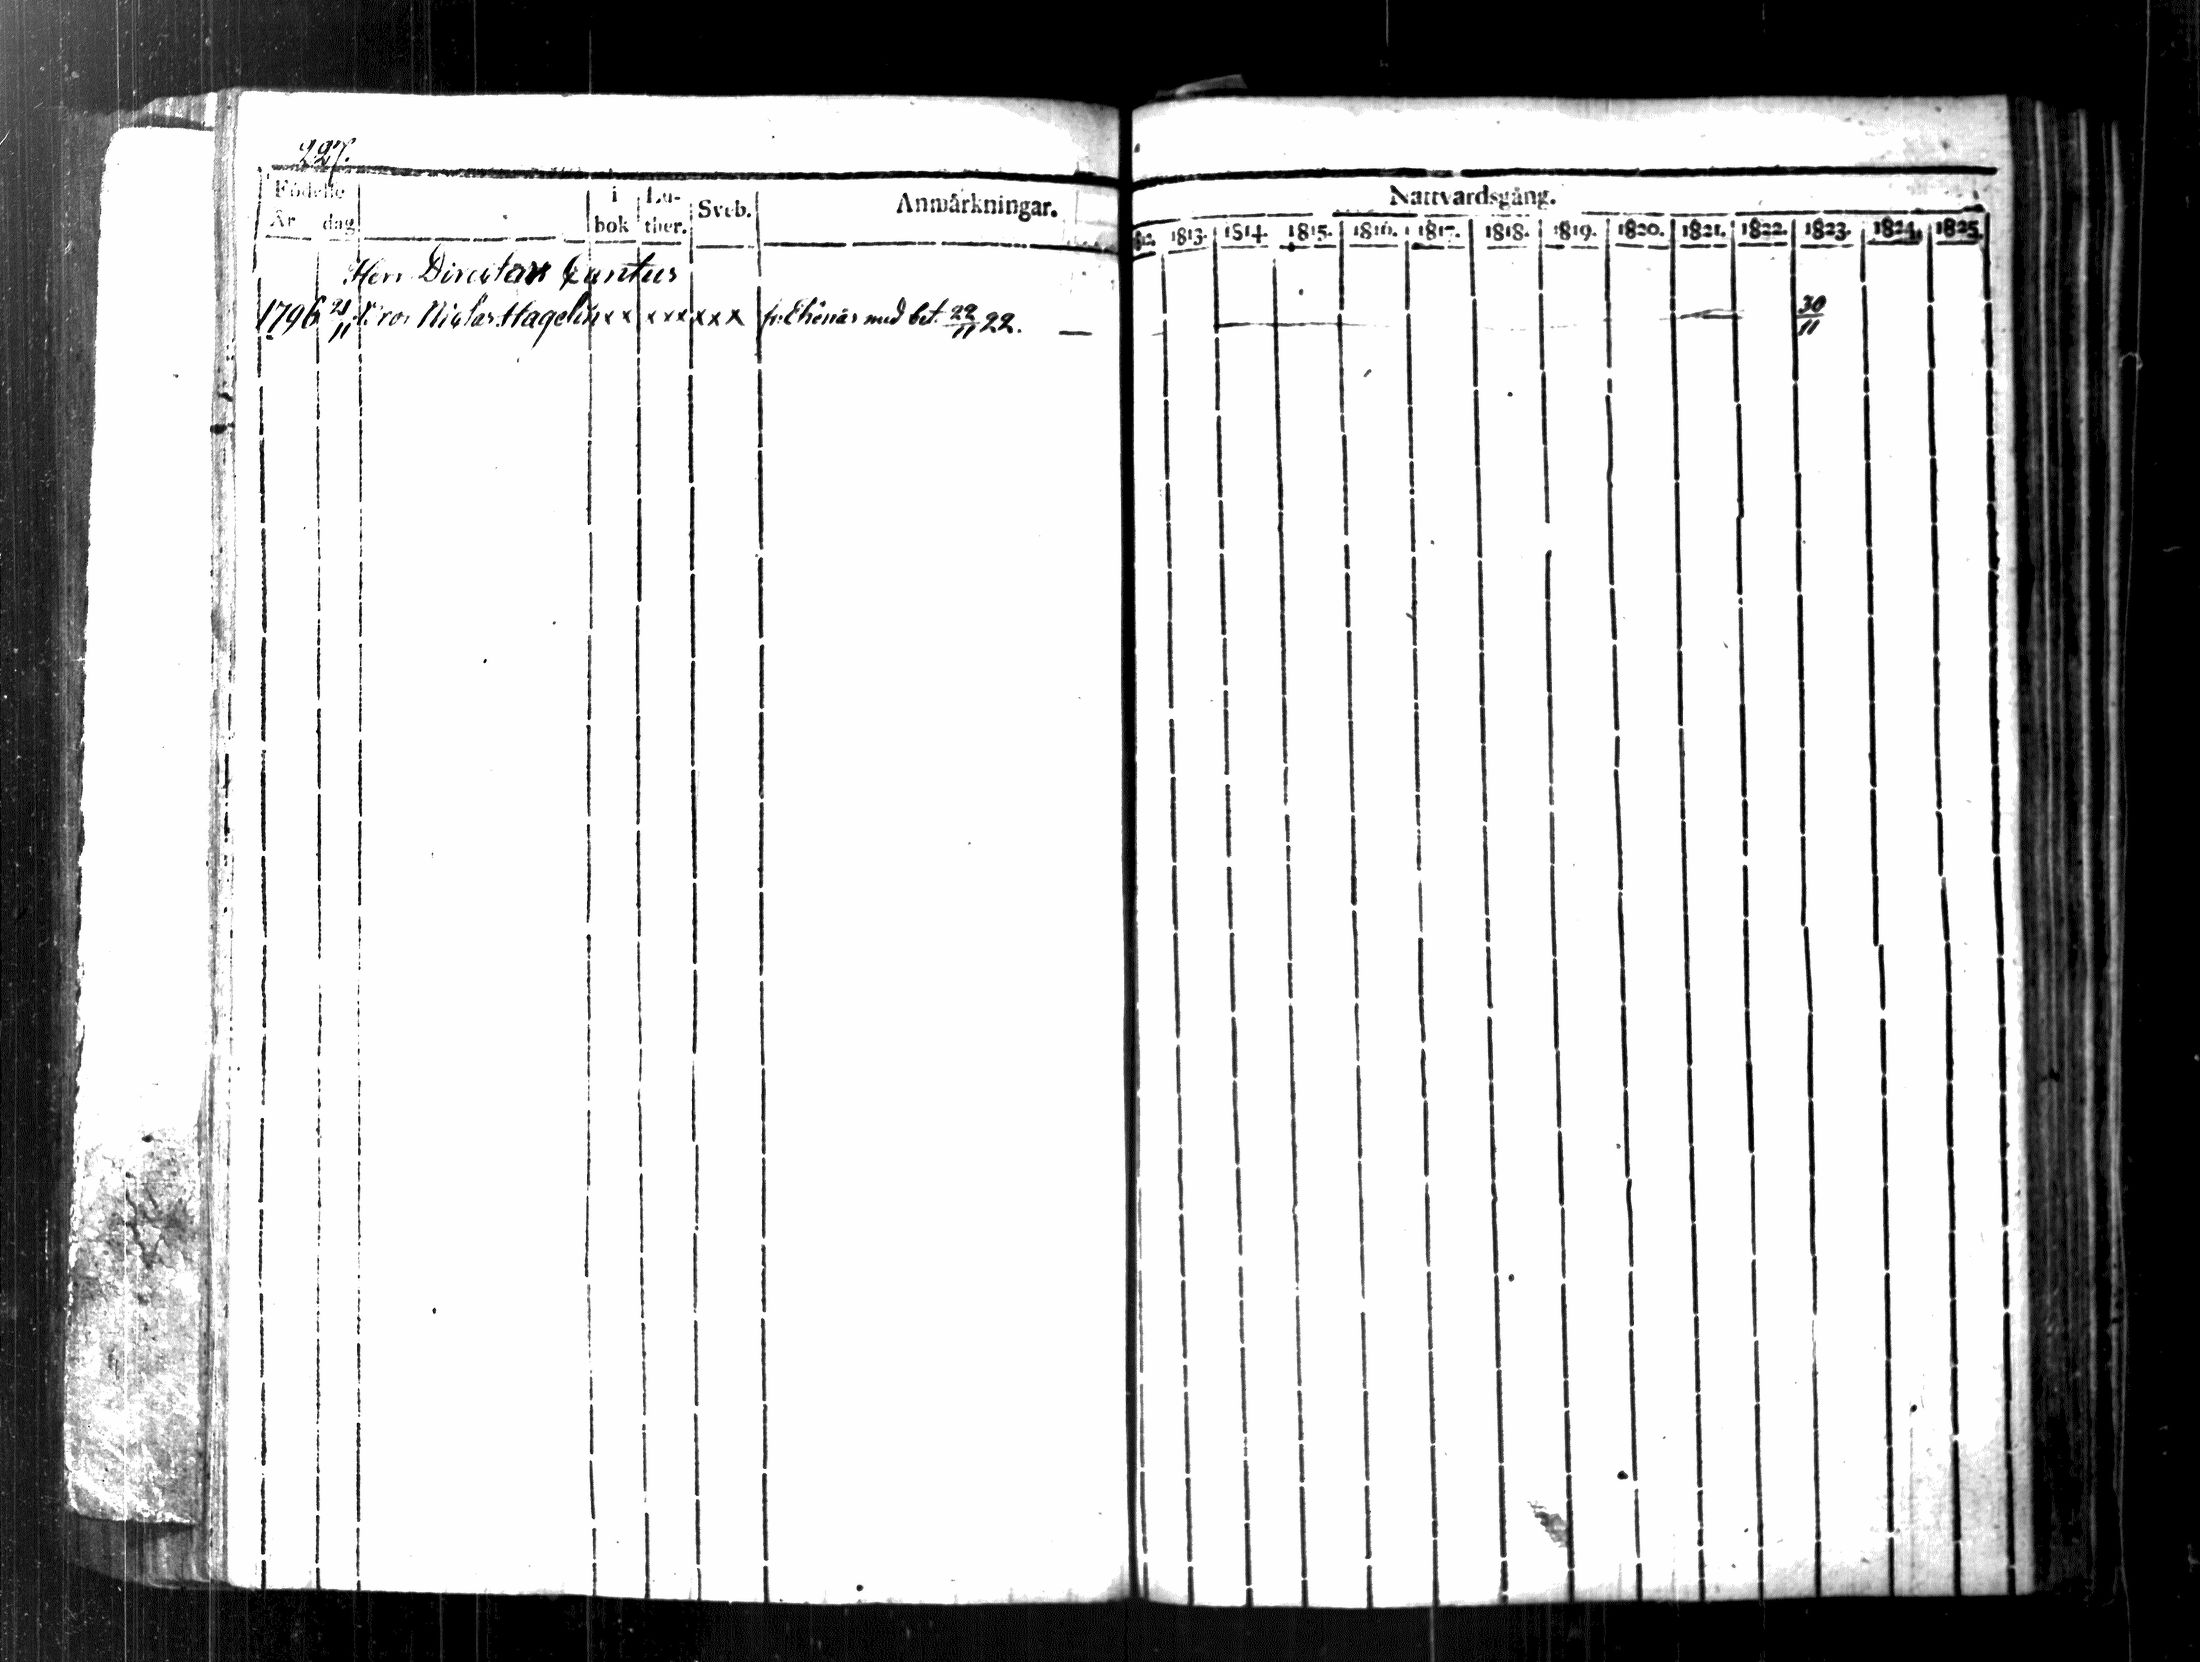 227.
Födelse i Lu- Sveb. Anmärkningar.
År dag bok ther.
Herr Directors
1796 21/11 Niclas Hagelin xx xxx xxx fr. Ekenäs med bet. 22/11 22. —
Nattvardsgång.
1812. 1813. 1814. 1815. 1816. 1817. 1818. 1819. 1820. 1821. 1822. 1823. 1824. 1825.
30/11